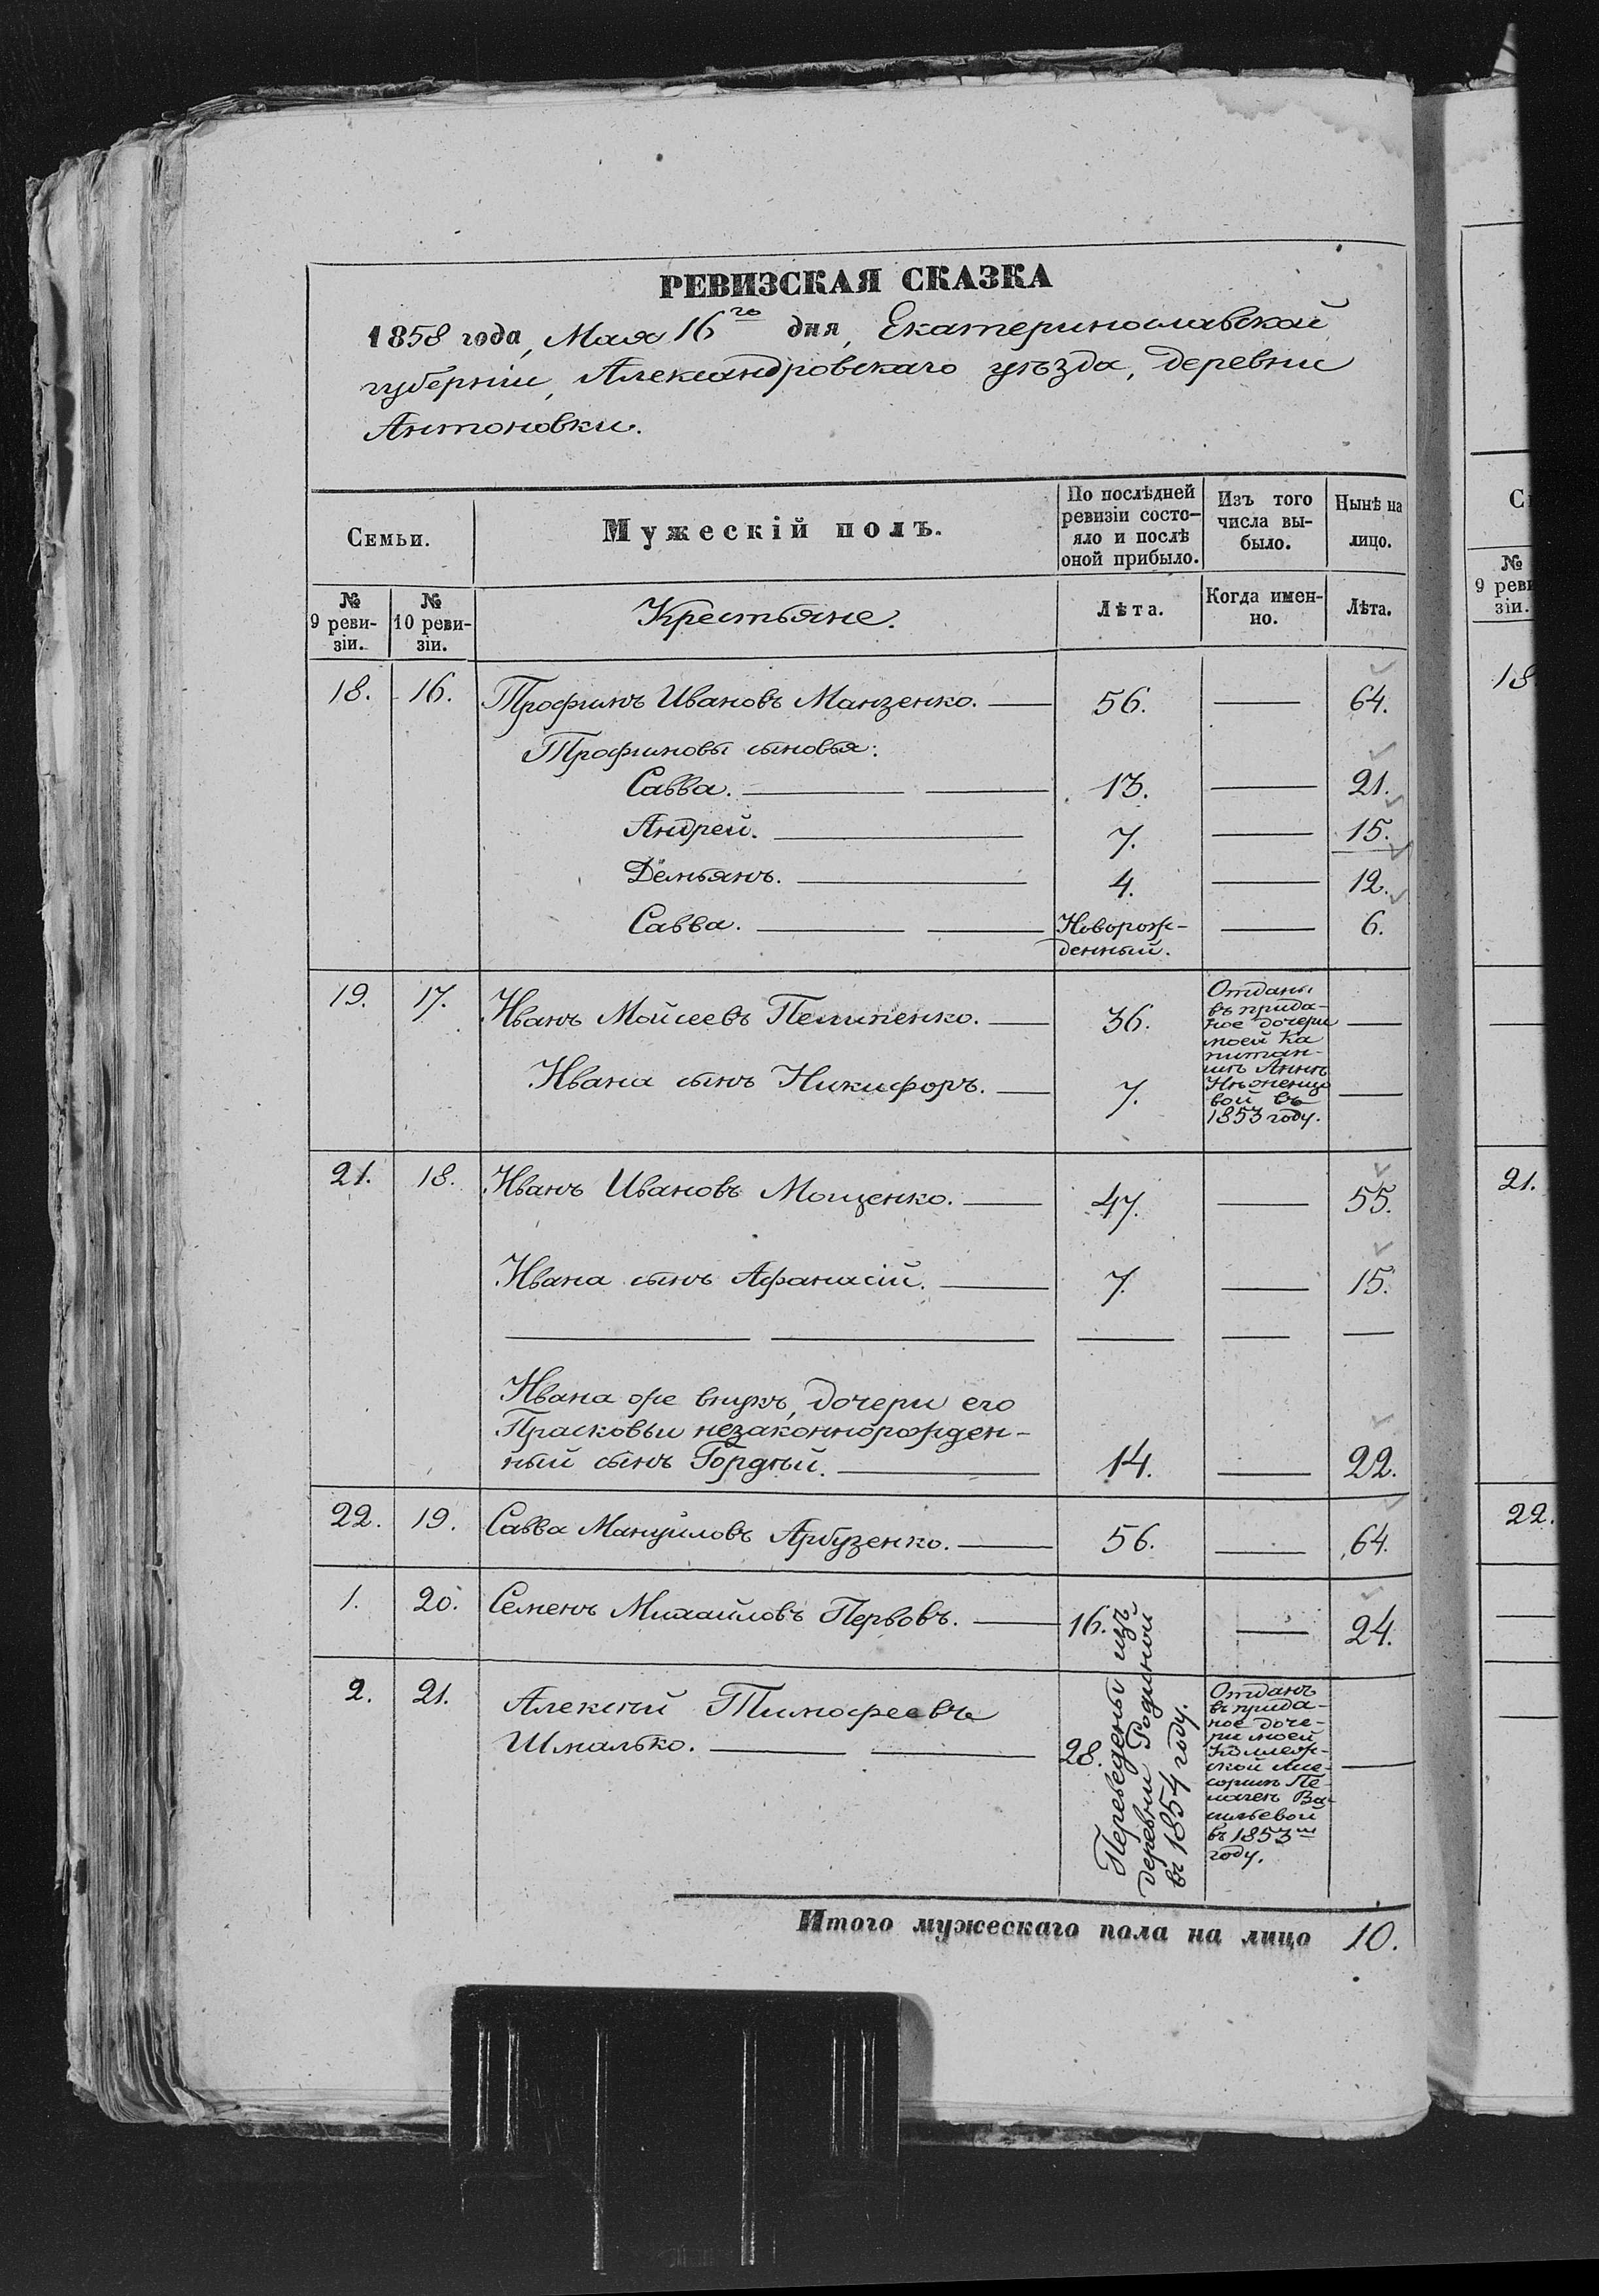 РЕВИЗСКАЯ СКАЗКА
1858 года, Мая 16го дня, Екатеринославской
губерніи, Александровскаго уѣзда, деревни
Антоновки.
Семьи.
Мужескій полъ.
По послѣдней
ревизіи состо-
яло и послѣ
оной прибыло.
Изъ того
числа вы-
было.
Нынѣ на
лицо.
№
9 реви-
зіи.
№
10 реви-
зіи.
Крестьяне.
Лѣта.
Когда имен-
но.
Лѣта.
18. 16. Трофимъ Ивановъ Манзенко. 56. 64.
Трофимовы сыновья:
Савва. 13. 21.
Андрей. 7. 15.
Демьянъ. 4. 12.
Савва. Новорож-
денный. 6.
19. 17. Иванъ Мойсеевъ Пелипенко. 36.
Ивана сынъ Никифоръ. 7.
Отданы
въ прида-
ное дочери
моей Ка
питан-
шѣ Аннѣ
вой въ
1853 году.
21. 18. Иванъ Ивановъ Мощенко. 47. 55.
Ивана сынъ Афанасій. 7. 15.
Ивана же внукъ, дочери его
Прасковьи незаконнорожден-
ный сынъ Гордѣй. 14. 22.
22. 19. Савва Мануйловъ Арбузенко. 56. 64.
1. 20. Семенъ Михайловъ Первовъ. 16. 24.
2. 21. Алексѣй Тимофеевъ
Шмалько. 28.
Переведены изъ
деревни Родиной
въ 1854 году.
Отданъ
въ прида-
ное доче-
ри моей
Коллеж-
ской Ассе-
соршѣ Пе-
лагеѣ Ва-
сильевой
въ 1853м
году.
Итого мужескаго пола на лицо 10.
С
№
9 реви
зіи.
18
21.
22.